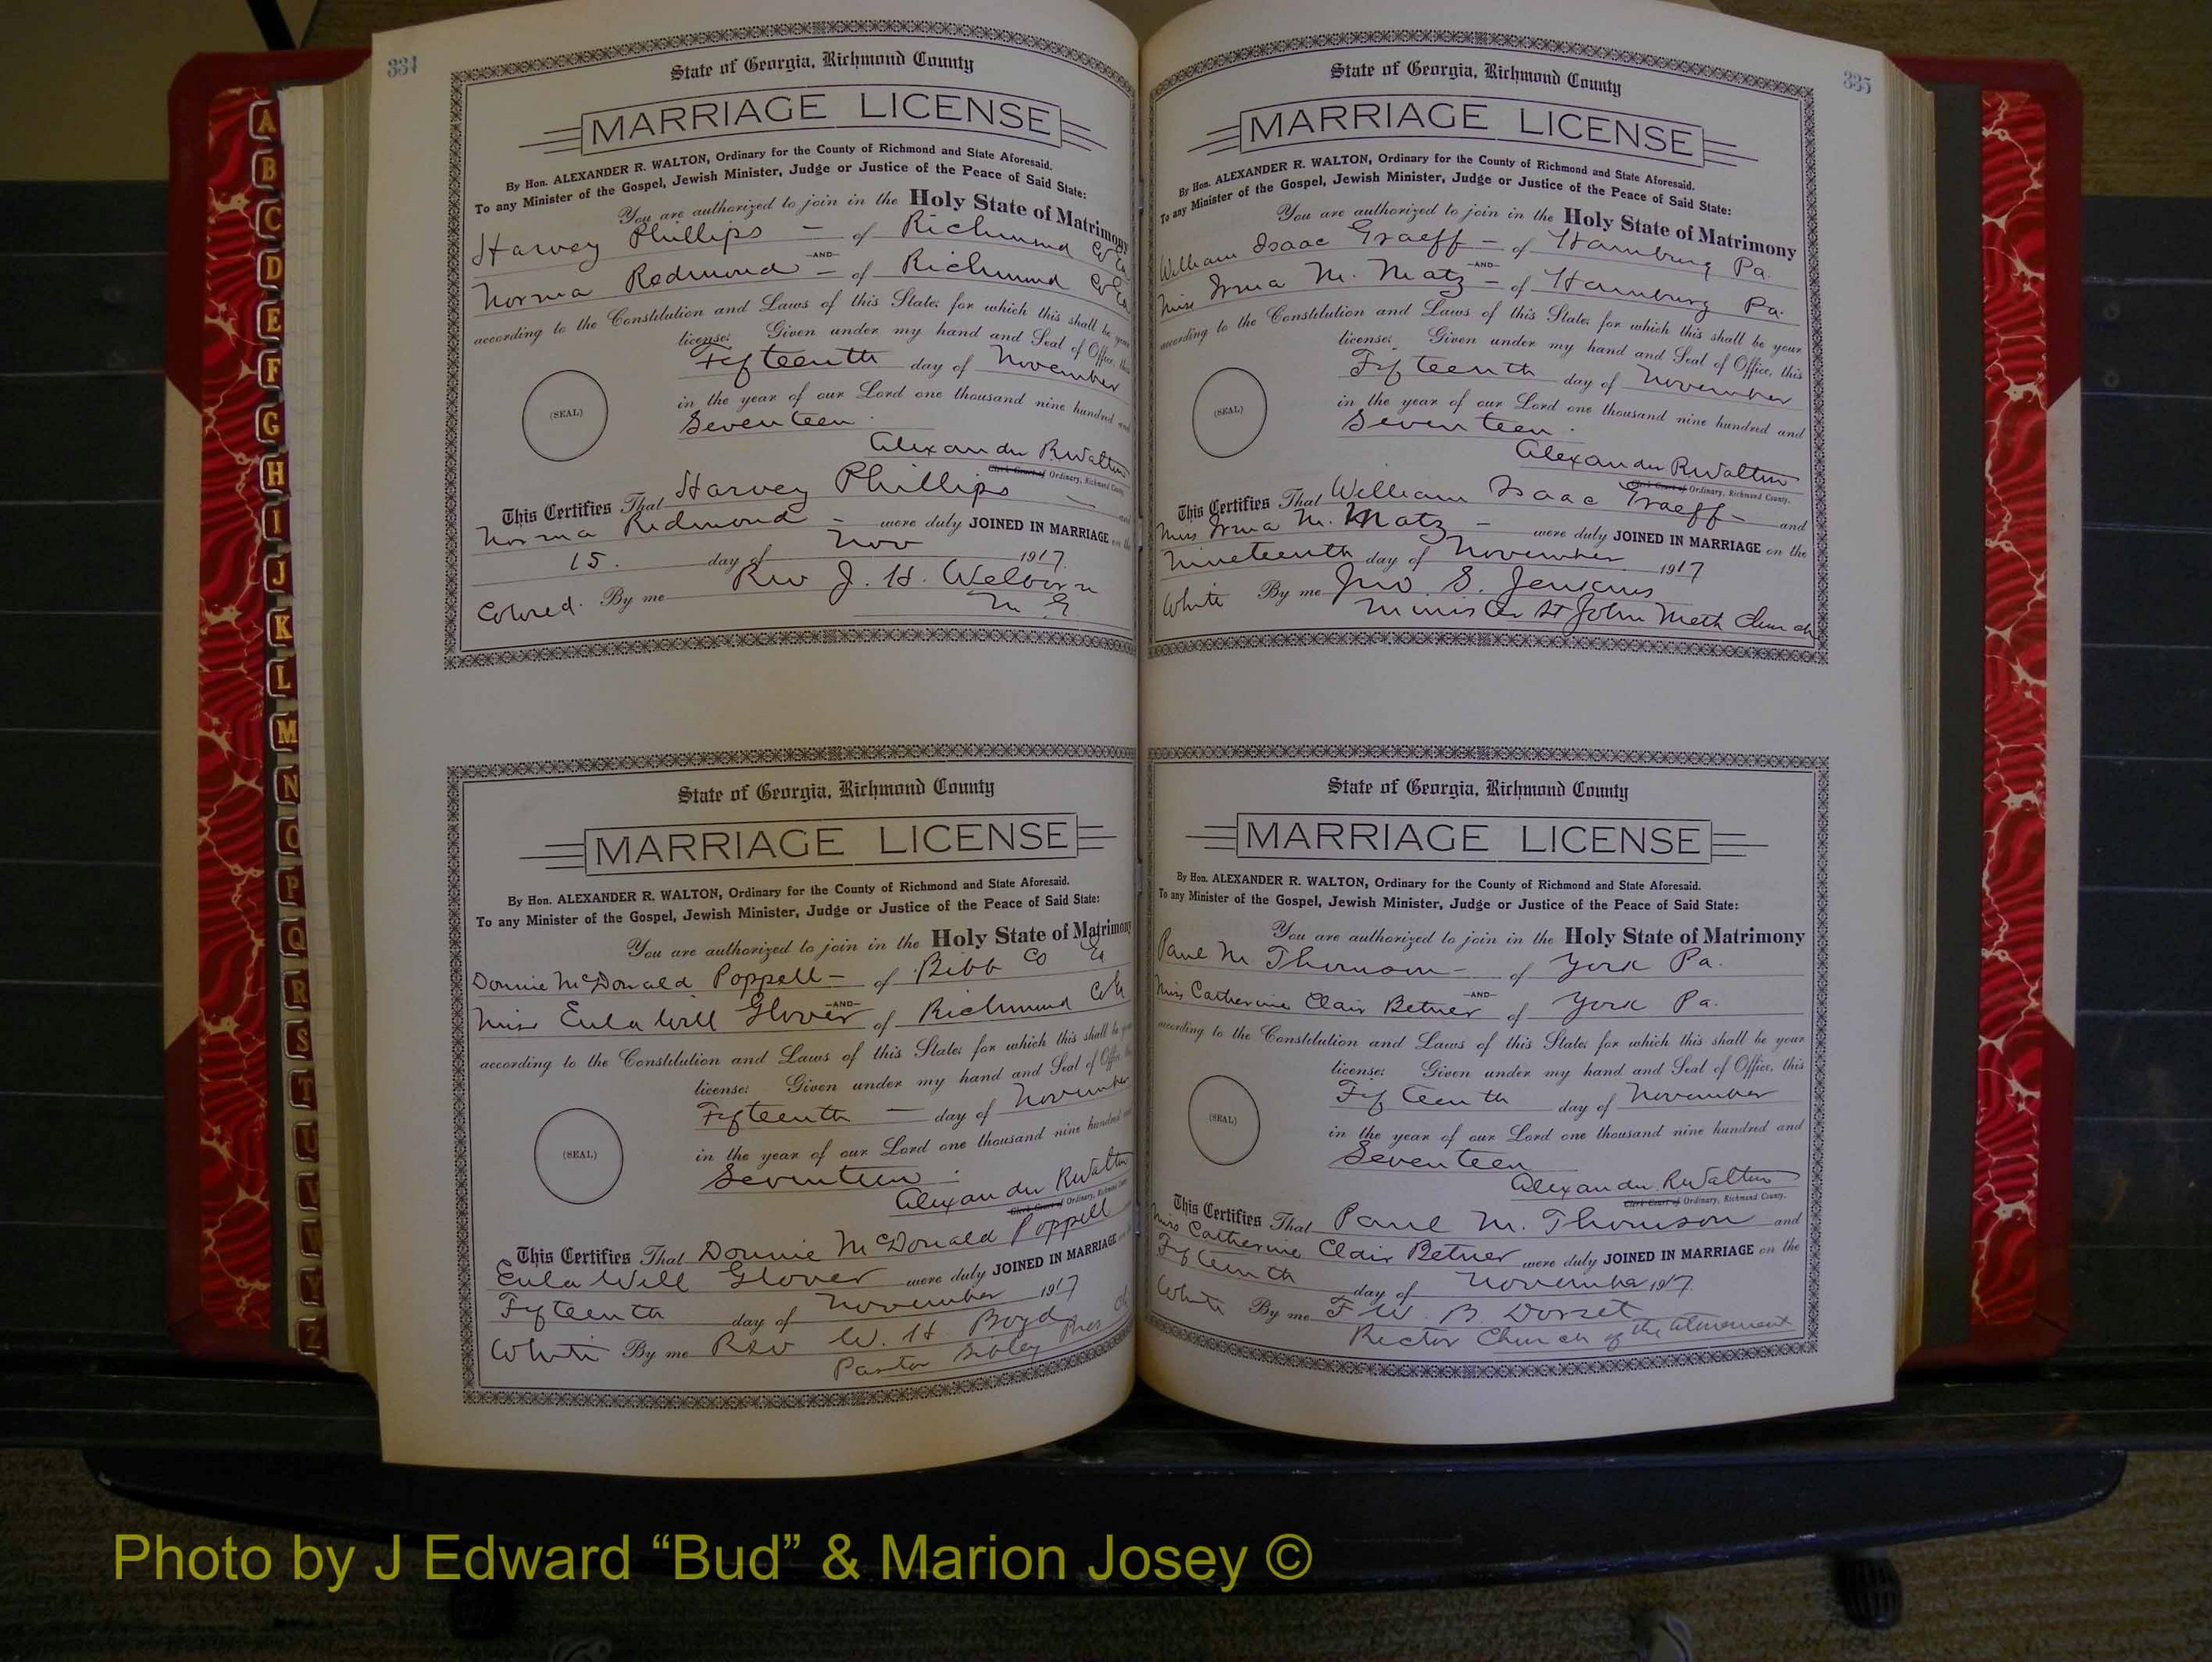 334
State of Georgia, Richmond County
MARRIAGE LICENSE
By Hon. ALEXANDER R. WALTON, Ordinary for the County of Richmond and State Aforesaid.
To any Minister of the Gospel, Jewish Minister, Judge or Justice of the Peace of Said State:
You are authorized to join in the Holy State of Matrimony
Harvey Phillips - of Richmond Co Ga
-AND-
Norma Redmond - of Richmond Co Ga
according to the Constitution and Laws of this State; for which this shall be your
license: Given under my hand and Seal of Office, this
Fifteenth day of November
in the year of our Lord one thousand nine hundred and
(SEAL)
Seventeen
Alexander R Walton
Clerk Court of Ordinary, Richmond County.
This Certifies That Harvey Phillips
Norma Redmond - were duly JOINED IN MARRIAGE on the
15. day of Nov 1917.
Colored. By me Rev J. H. Welborn
M. E.
State of Georgia, Richmond County
MARRIAGE LICENSE
By Hon. ALEXANDER R. WALTON, Ordinary for the County of Richmond and State Aforesaid.
To any Minister of the Gospel, Jewish Minister, Judge or Justice of the Peace of Said State:
You are authorized to join in the Holy State of Matrimony
Donnie McDonald Poppell - of Bibb Co Ga
-AND-
Miss Eula Will Glover of Richmond Co Ga
according to the Constitution and Laws of this State; for which this shall be your
license: Given under my hand and Seal of Office, this
Fifteenth - day of November
in the year of our Lord one thousand nine hundred and
(SEAL)
Seventeen
Alexander R Walton
Clerk Court of Ordinary, Richmond County.
This Certifies That Donnie McDonald Poppell
Eula Will Glover were duly JOINED IN MARRIAGE on the
Fifteenth day of November 1917
White By me Rev W. H. Boyd
Pastor Sibley Pres Ch
335
State of Georgia, Richmond County
MARRIAGE LICENSE
By Hon. ALEXANDER R. WALTON, Ordinary for the County of Richmond and State Aforesaid.
To any Minister of the Gospel, Jewish Minister, Judge or Justice of the Peace of Said State:
You are authorized to join in the Holy State of Matrimony
William Isaac Graeff - of Hamburg Pa.
-AND-
Miss Irma M. Matz - of Hamburg Pa.
according to the Constitution and Laws of this State; for which this shall be your
license: Given under my hand and Seal of Office, this
Fifteenth day of November
in the year of our Lord one thousand nine hundred and
(SEAL)
Seventeen.
Alexander R Walton
Clerk Court of Ordinary, Richmond County.
This Certifies That William Isaac Graeff - and
Miss Irma M. Matz - were duly JOINED IN MARRIAGE on the
Nineteenth day of November 1917
White By me Jno. S. Jenkins
Minister St John Meth Church
State of Georgia, Richmond County
MARRIAGE LICENSE
By Hon. ALEXANDER R. WALTON, Ordinary for the County of Richmond and State Aforesaid.
To any Minister of the Gospel, Jewish Minister, Judge or Justice of the Peace of Said State:
You are authorized to join in the Holy State of Matrimony
Paul M Thomson - of York Pa.
-AND-
Miss Catherine Clair Betner of York Pa.
according to the Constitution and Laws of this State; for which this shall be your
license: Given under my hand and Seal of Office, this
Fifteenth day of November
in the year of our Lord one thousand nine hundred and
(SEAL)
Seventeen
Alexander R Walton
Clerk Court of Ordinary, Richmond County.
This Certifies That Paul M. Thomson and
Miss Catherine Clair Betner were duly JOINED IN MARRIAGE on the
Fifteenth day of November 1917.
White By me F. W. B. Dorset
Rector Church of the Atonement
A
B
C
D
E
F
G
H
I
J
K
L
M
N
O
P
Q
R
S
T
U
V
W
Y
Z
Photo by J Edward “Bud” & Marion Josey ©